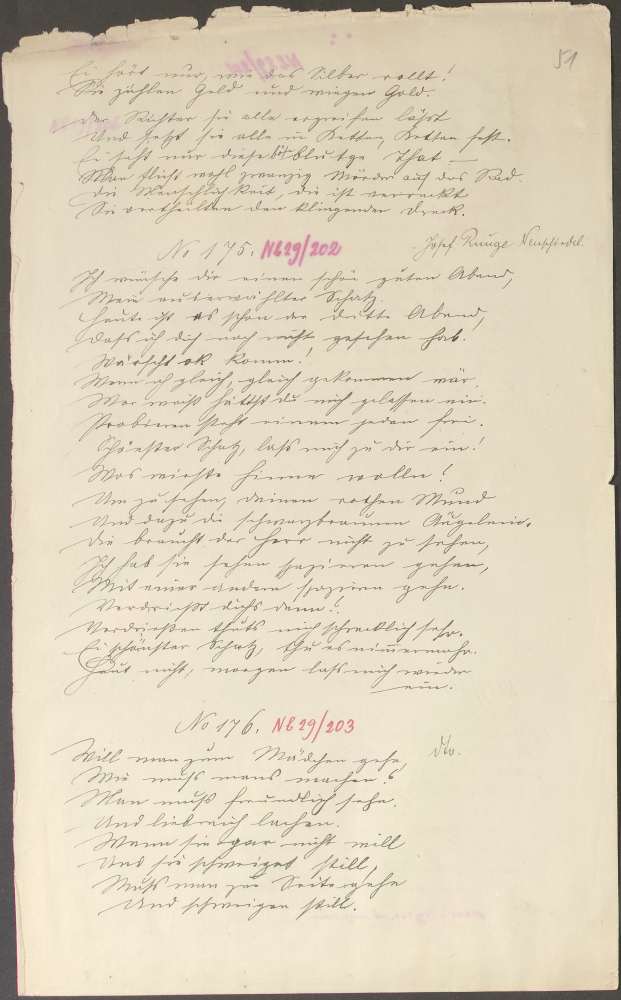 51
Ei hört nur, wie das Silber rollt!
Sie zählen Geld und wiegen Gold.
Der Richter sie alle ergreifen läßt
Und setzt sie alle in Ketten, Ketten fest.
Ei seht nur diese blutge That —
Man flicht wohl zwanzig Mörder auf das Rad.
Die Menschlichkeit, die ist verreckt
Sie vertheilten den klingenden Dreck.
No 175. NB29/202
Josef Runge Neuschiedel.
Ich wünsche dir einen schön guten Abend,
Mein auserwählter Schatz.
Heute ist es schon der dritte Abend,
Dass ich dich noch nicht gesehen hab.
Wärscht ok komm!
Wenn ich gleich, gleich gekommen wär,
Wer weiß hättst du mich gelassen ein.
Probieren steht einem jeden frei.
Schönster Schatz, lass mich zu dir ein!
Was wieste hinne wolln!
Um zu sehen, deinen rothen Mund
Und dazu die schwarzbraunen Äugelein.
Die braucht der Herr nicht zu sehen,
Ich hab sie sehen spazieren gehen,
Mit einer andern spaziren gehn.
Verdrießt dichs denn?
Verdrießen thuts mich schrecklich sehr.
Ei schönster Schatz, thu es nimmermehr.
Heut nicht, morgen lass mich wieder
ein.
No 176. NB29/203
Will man zum Mädchen gehn, dto.
Wie muss mans machen?
Man muss freundlich sehn.
Und liebreich lachen.
Wenn sie gar nicht will
Und sie schweiget still,
Muss man zur Seite gehn
Und schweigen still.